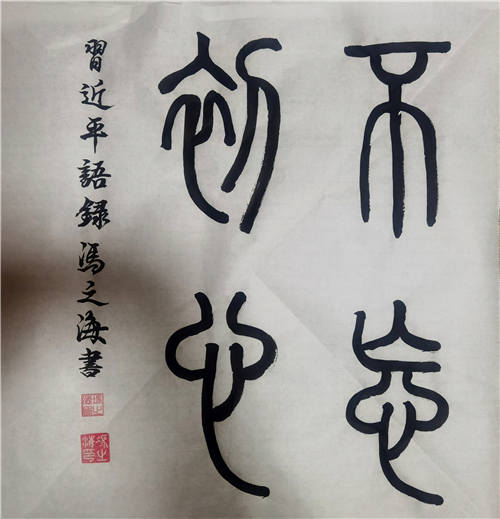 不忘
初心
習近平語録馮之海書